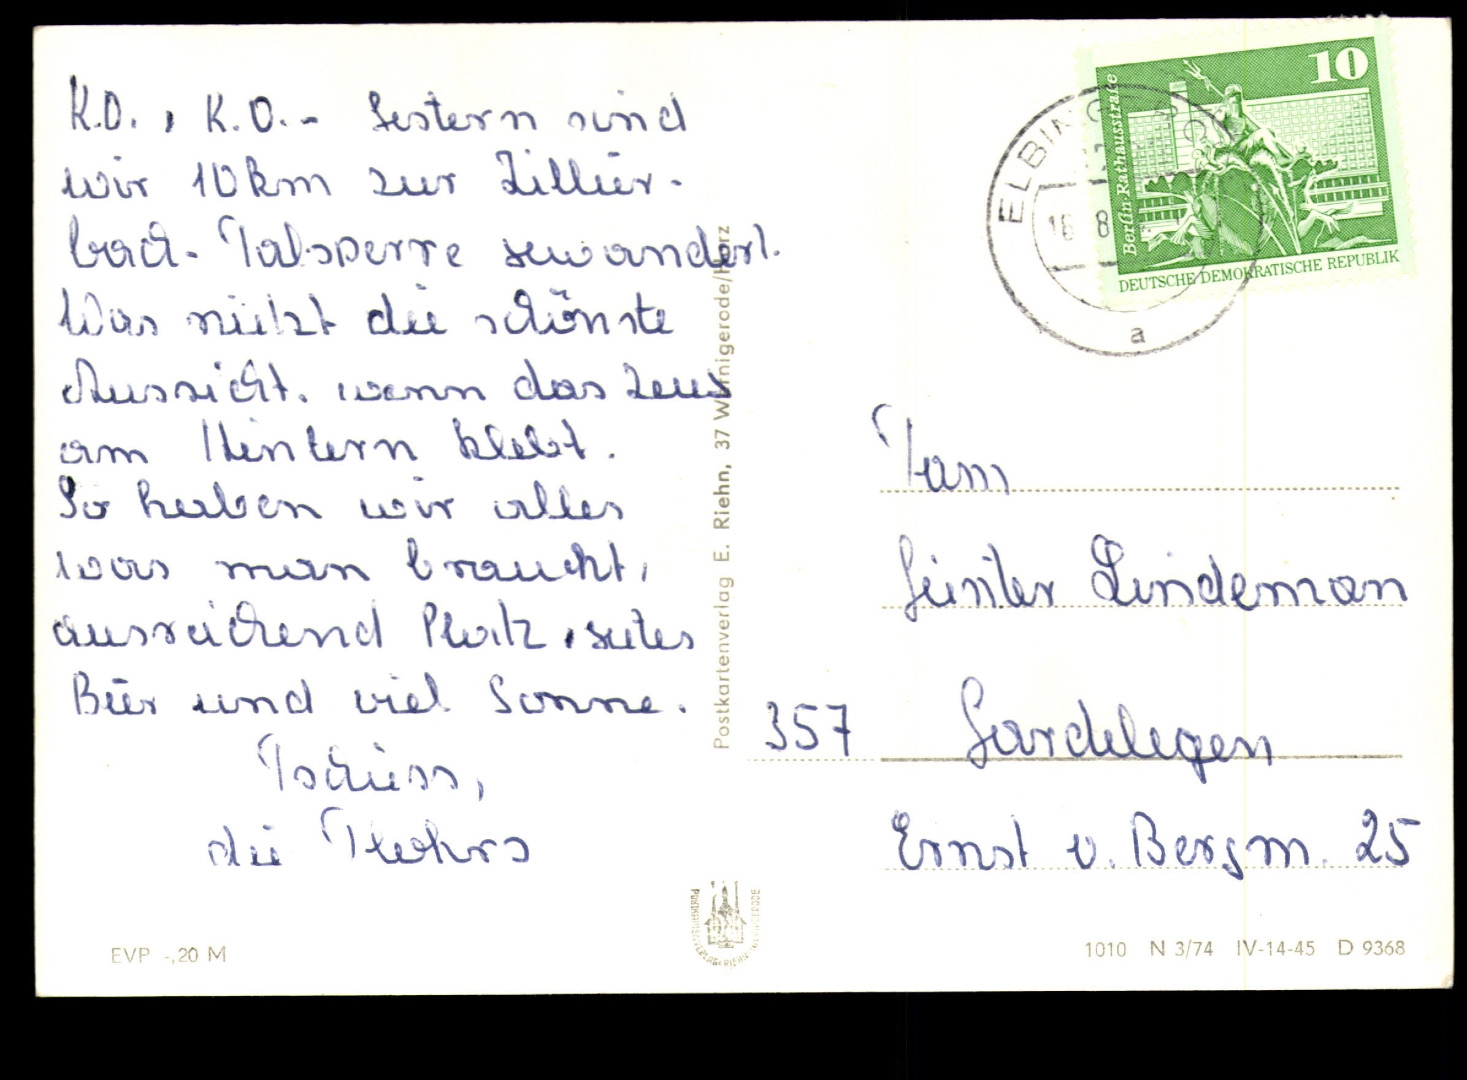 K.O., K.O. - Gestern sind
wir 10 km zur Zillier-
bach-Talsperre gewandert.
Was nützt die schönste
Aussicht, wenn das Zeug
am Hintern klebt.
So haben wir alles
was man braucht,
ausreichend Platz, gutes
Bier und viel Sonne.
Tschüss,
die
EVP -,20 M
Postkartenverlag E. Riehn, 37 Wernigerode/Harz
10
Berlin·Rathausstraße
DEUTSCHE DEMOKRATISCHE REPUBLIK
ELBING
8
a
Fam
Günter Lindeman
357 Gardelegen
Ernst v. Bergm. 25
1010 N 3/74 IV-14-45 D 9368